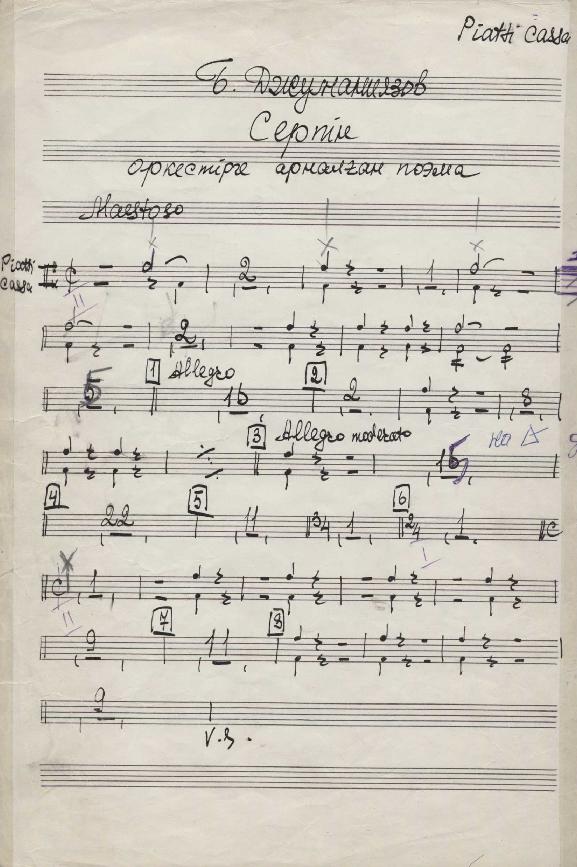 Piatti Cassa
Б. Джуманиязов
Серпін
оркестірге арналған поэма
Maestoso
Piatti
Cassa
2 1
II
2
1 Allegro 2
16 2 8
3 Allegro moderato
на
4 5 6
22 11 3/4 1 2/4 1
I
1
II
7 8
9 11
9
V.S.